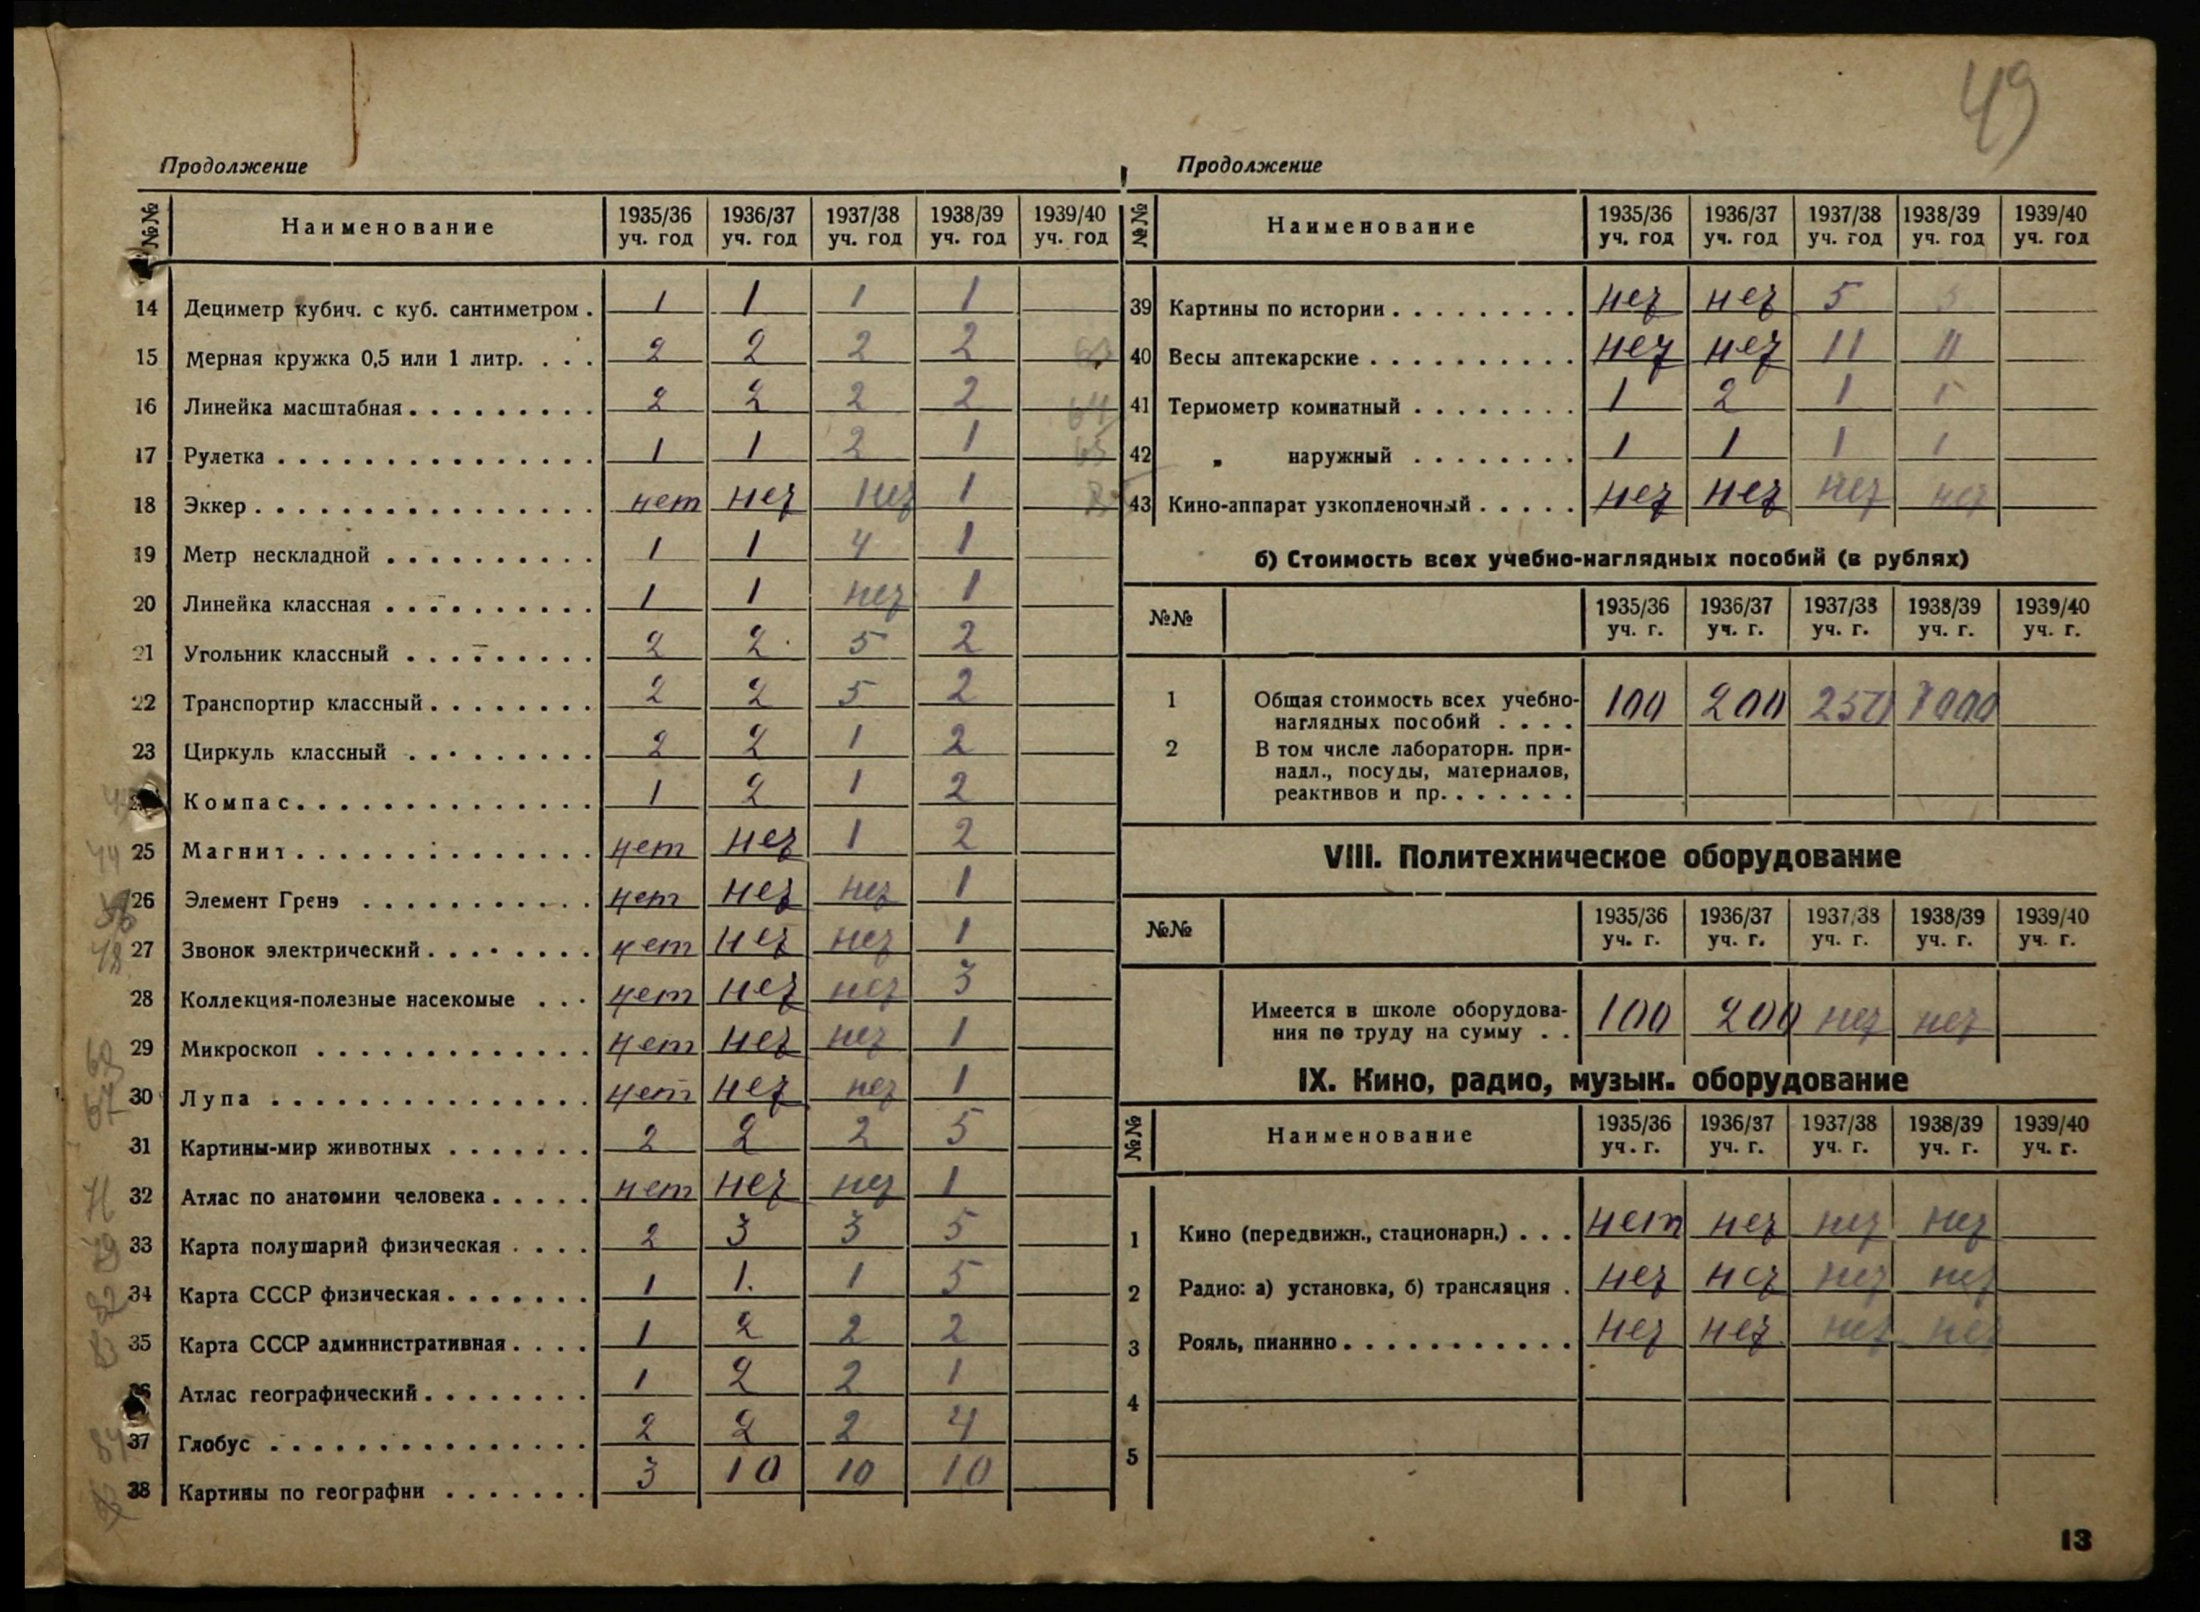 49
Продолжение
№№ Наименование 1935/36 уч. год 1936/37 уч. год 1937/38 уч. год 1938/39 уч. год 1939/40 уч. год
14 Дециметр кубич. с куб. сантиметром . 1 1 1 1
15 Мерная кружка 0,5 или 1 литр. . . . 2 2 2 2
16 Линейка масштабная . . . . . . . . . 2 2 2 2 64
17 Рулетка . . . . . . . . . . . . . . . 1 1 2 1 65
18 Эккер . . . . . . . . . . . . . . . . нет нет нет 1
19 Метр нескладной . . . . . . . . . . 1 1 4 1
20 Линейка классная . . . . . . . . . . 1 1 нет 1
21 Угольник классный . . . . . . . . . 2 2 5 2
22 Транспортир классный . . . . . . . . 2 2 5 2
23 Циркуль классный . . . . . . . . . 2 2 1 2
Компас . . . . . . . . . . . . . . 1 2 1 2
44 25 Магнит . . . . . . . . . . . . . . нет нет 1 2
26 Элемент Гренэ . . . . . . . . . . . нет нет нет 1
48 27 Звонок электрический . . . . . . . . нет нет нет 1
28 Коллекция-полезные насекомые . . . нет нет нет 3
29 Микроскоп . . . . . . . . . . . . . нет нет нет 1
67 30 Лупа . . . . . . . . . . . . . . . нет нет нет 1
31 Картины-мир животных . . . . . . . 2 2 2 5
71 32 Атлас по анатомии человека . . . . . нет нет нет 1
79 33 Карта полушарий физическая . . . . 2 3 3 5
82 34 Карта СССР физическая . . . . . . . 1 1. 1 5
83 35 Карта СССР административная . . . . 1 2 2 2
36 Атлас географический . . . . . . . . 1 2 2 1
84 37 Глобус . . . . . . . . . . . . . . . 2 2 2 4
38 Картины по географии . . . . . . . 3 10 10 10
Продолжение
№№ Наименование 1935/36 уч. год 1936/37 уч. год 1937/38 уч. год 1938/39 уч. год 1939/40 уч. год
39 Картины по истории . . . . . . . . . нет нет 5 5
40 Весы аптекарские . . . . . . . . . . нет нет 11 11
41 Термометр комнатный . . . . . . . . 1 2 1 1
42 „ наружный . . . . . . . . 1 1 1 1
43 Кино-аппарат узкопленочный . . . . . нет нет нет нет
б) Стоимость всех учебно-наглядных пособий (в рублях)
№№ 1935/36 уч. г. 1936/37 уч. г. 1937/38 уч. г. 1938/39 уч. г. 1939/40 уч. г.
1 Общая стоимость всех учебно-
наглядных пособий . . . . 100 200 250
2 В том числе лабораторн. при-
надл., посуды, материалов,
реактивов и пр. . . . . . .
VIII. Политехническое оборудование
№№ 1935/36 уч. г. 1936/37 уч. г. 1937/38 уч. г. 1938/39 уч. г. 1939/40 уч. г.
Имеется в школе оборудова-
ния по труду на сумму . . 100 200 нет нет
IX. Кино, радио, музык. оборудование
№№ Наименование 1935/36 уч. г. 1936/37 уч. г. 1937/38 уч. г. 1938/39 уч. г. 1939/40 уч. г.
1 Кино (передвижн., стационарн.) . . . нет нет нет нет
2 Радио: а) установка, б) трансляция . нет нет нет нет
3 Рояль, пианино . . . . . . . . . . . нет нет нет нет
4
5
13